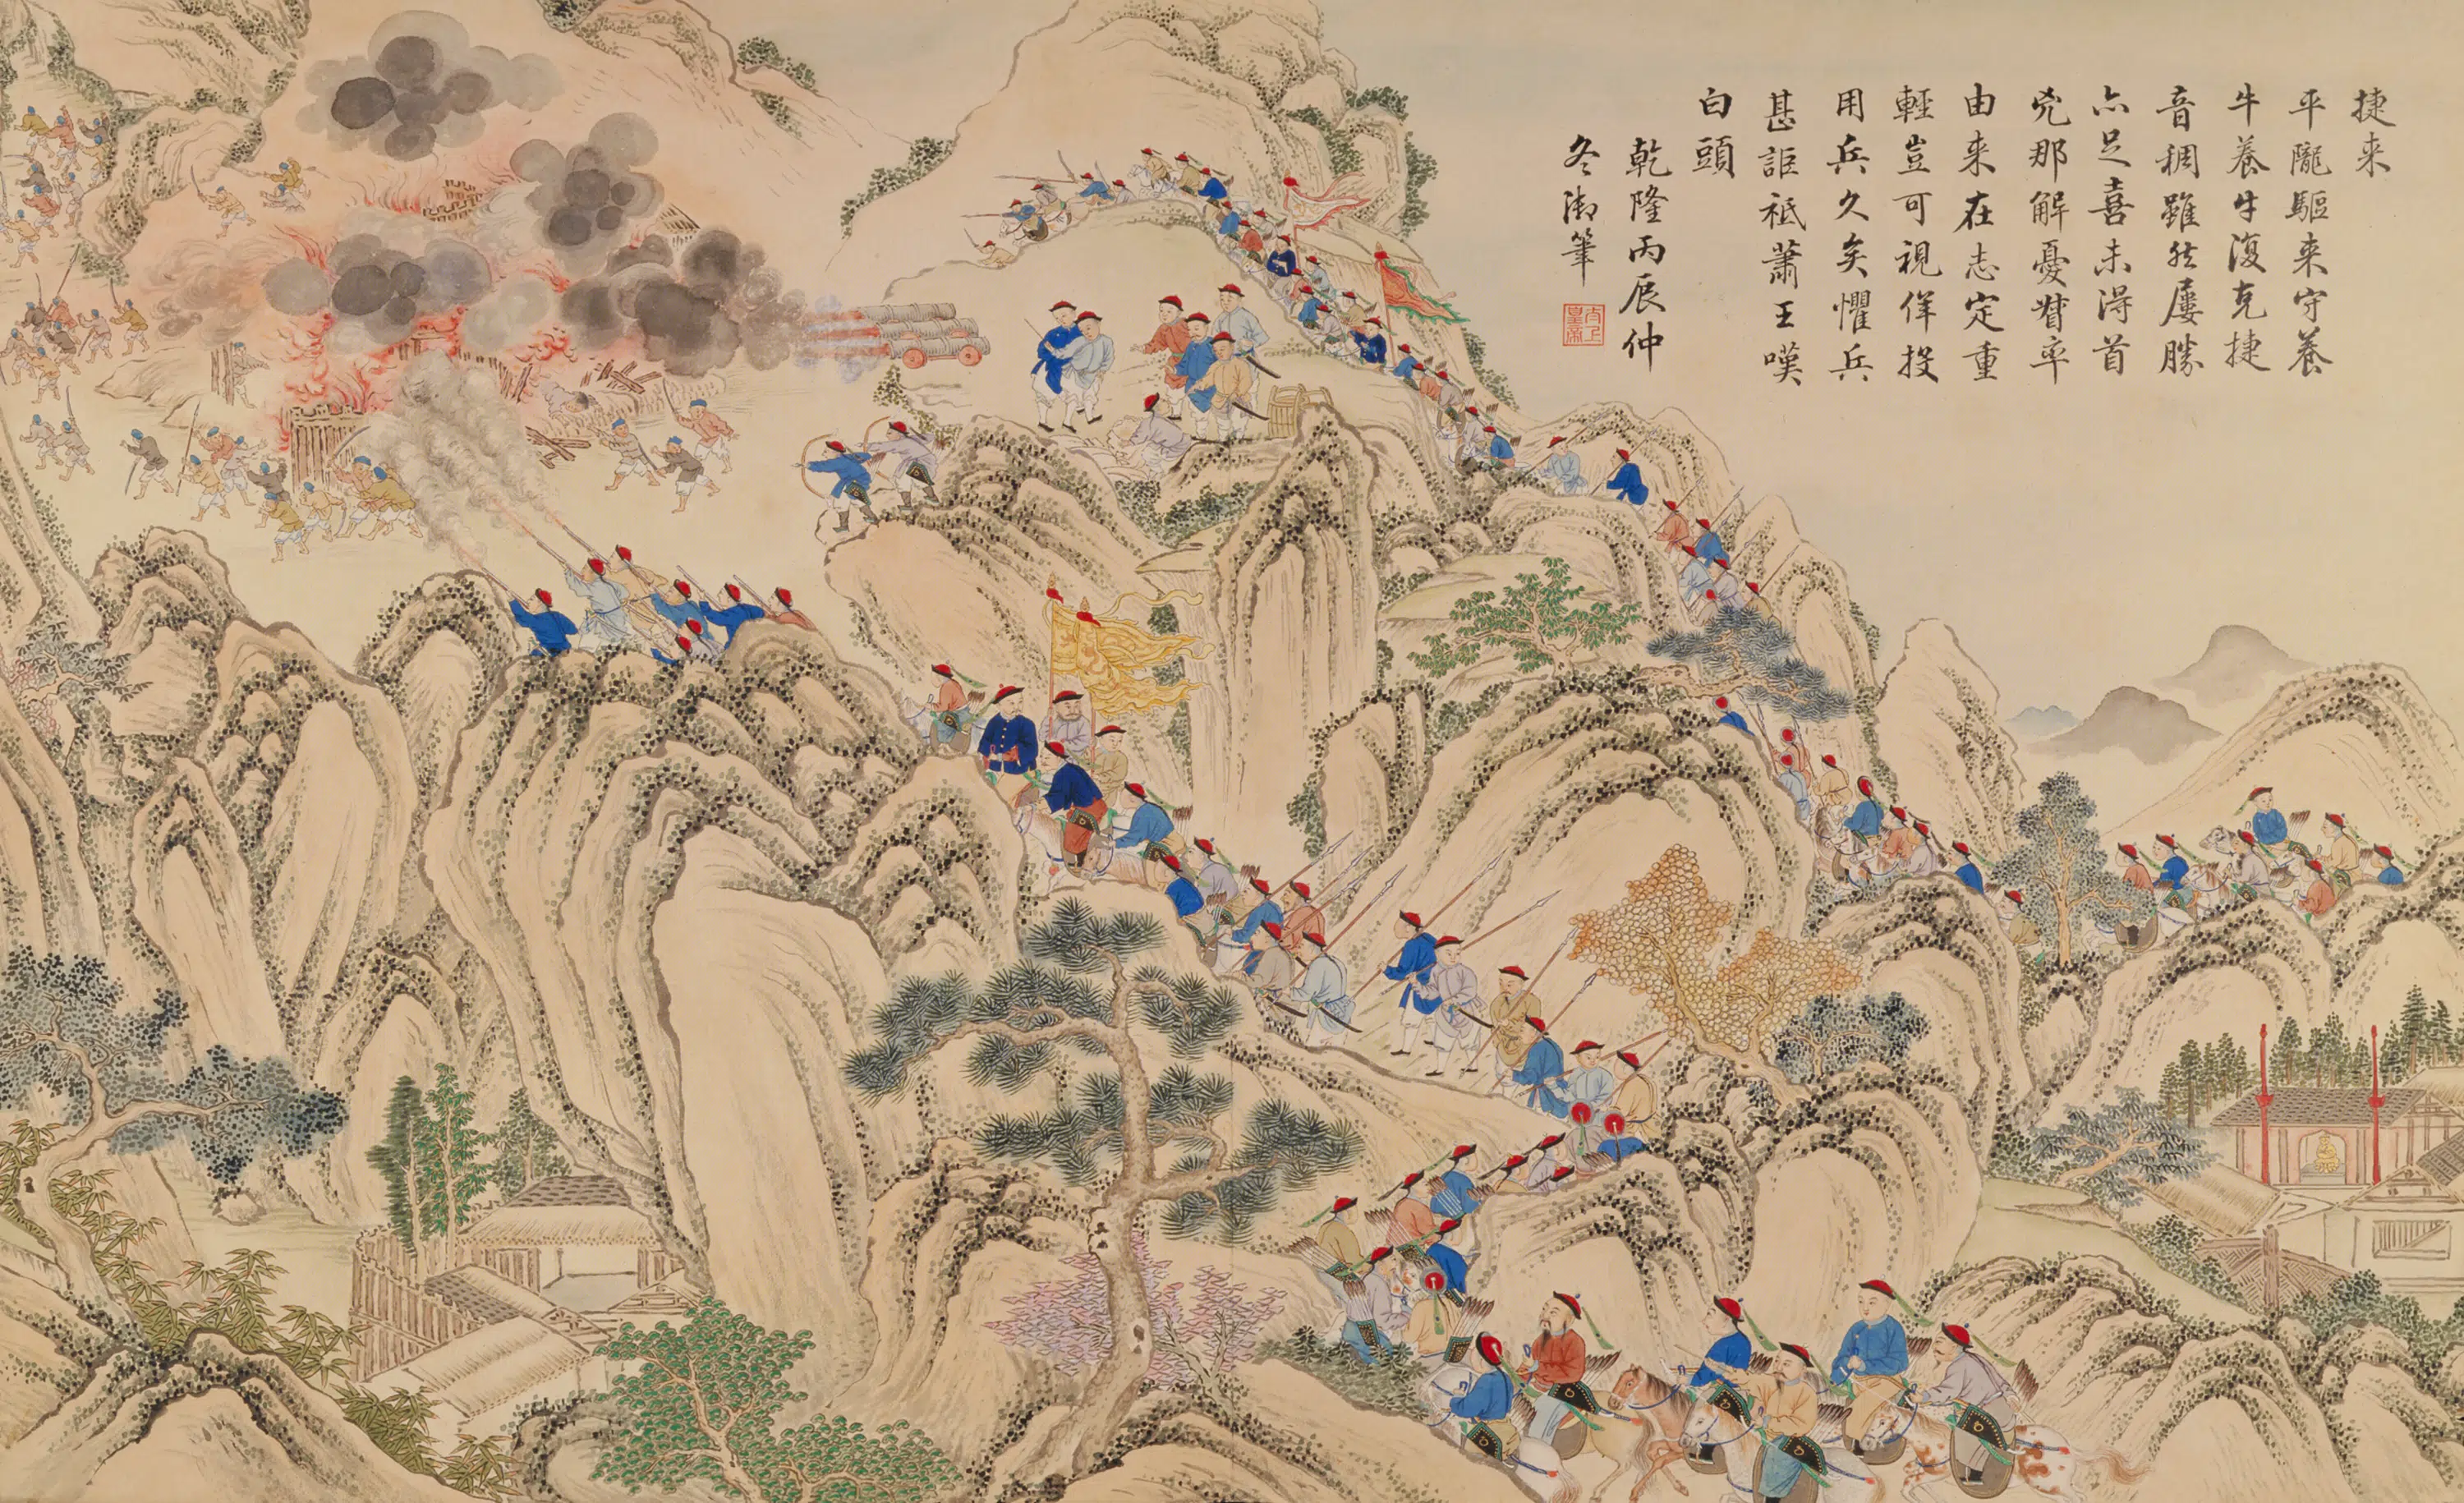 捷来
平隴驅来守養
牛養牛復克捷
音稠雖然屢勝
亦足喜未得首
兇那解憂督率
由来在志定重
輕豈可視佯投
用兵久矣懼兵
甚詎祗蕭王嘆
白頭
乾隆丙辰仲
冬御筆
太上皇帝